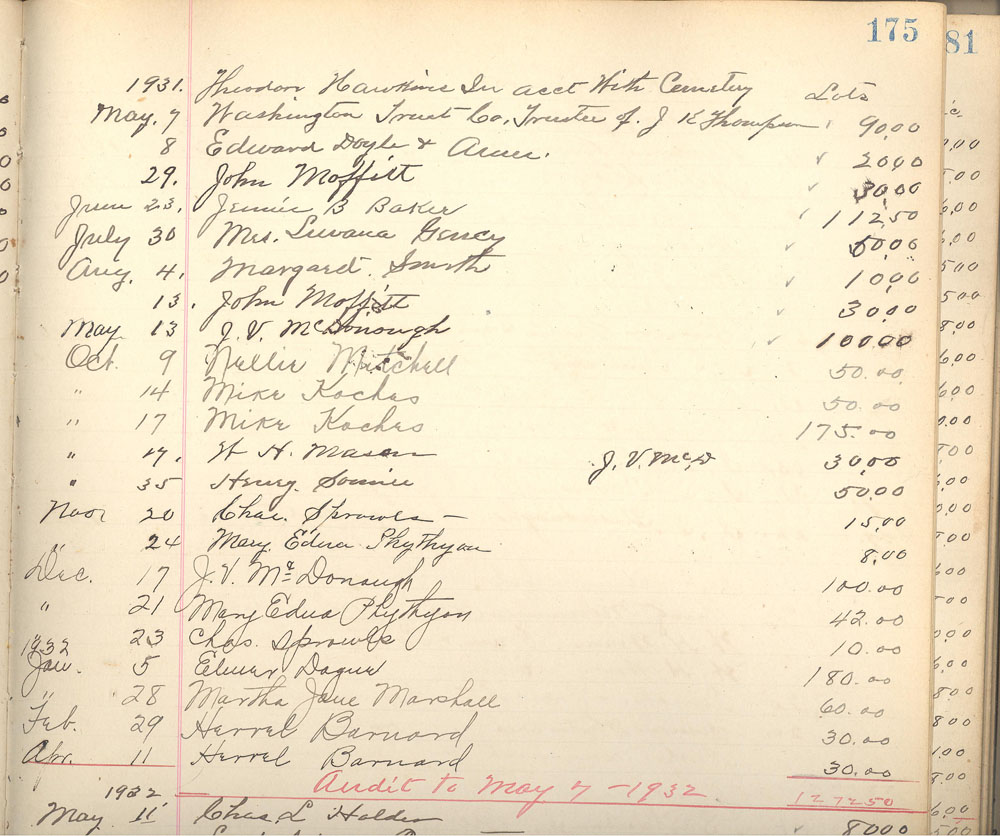 175
81
1931. Theodore Hawkins In acct With Cemetery Lots
May. 7 Washington Trust Co, Trustee of J K Thompson 90,00
8 Edward Doyle & 20,00
29. John Moffitt 30,00
June 23. Jennie B Baker 112,50
July 30 Mrs. 50,00
Aug. 4. Margaret Smith 10,00
13. John Moffitt 30,00
May 13 J. V. McDonough 100,00
Oct. 9 Nellie Mitchell 50.00
" 14 Mike Kochis 50.00
" 17 Mike Kochis 175.00
" 17. W H. Mason J. V. McD 30,00
" Henry 50,00
20 Chas. Sprowls - 15,00
" 24 Mary Edna Phythyon 8,00
Dec. 17 J. V. McDonough 100.00
" 21 Mary Edna Phythyon 42.00
" 23 Chas. Sprowls 10.00
1932
Jan. 5 Elmer Dague 180.00
" 28 Martha Jane Marshall 60.00
Feb. 29 Herrel Barnard 30.00
Apr. 11 Herrel Barnard 30.00
Audit to May 7 - 1932 1272 50
1932
May 11 Chas L Holder 80 00